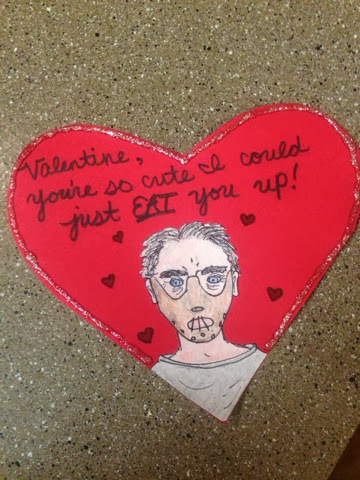 Valentine,
you're so cute I could
just EAT you up!